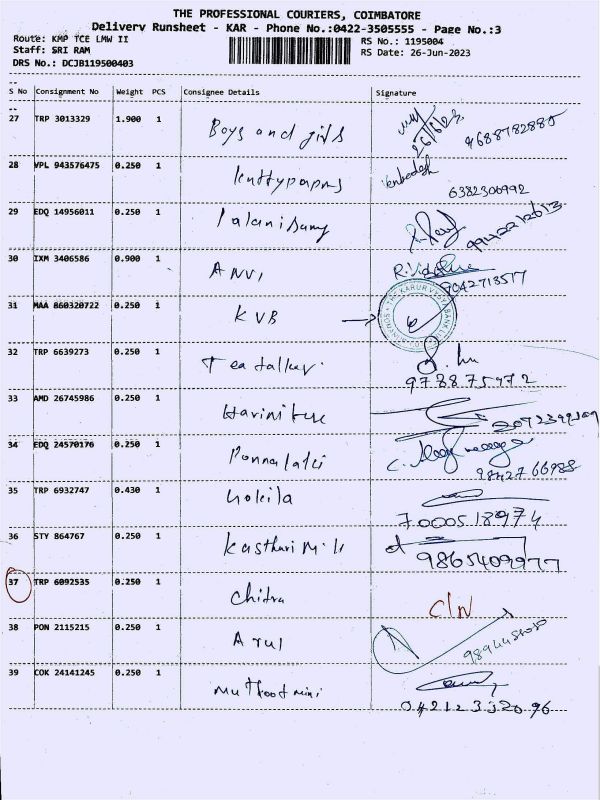 THE PROFESSIONAL COURIERS, COIMBATORE
Delivery Runsheet - KAR - Phone No.:0422-3505555 - Page No.:3
Route: KMP TCE LMW II RS No.: 1195004
Staff: SRI RAM RS Date: 26-Jun-2023
DRS No.: DCJB119500403
S No Consignment No Weight PCS Consignee Details Signature
27 TRP 3013329 1.900 1 Boys and girls 26/6/23 9688782885
28 VPL 943576475 0.250 1 Venkadesh 6382306992
29 EDQ 14956011 0.250 1 Palanisamy
30 IXM 3406586 0.900 1 ANVI 9042718517
31 MAA 860320722 0.250 1 KVB THE KARUR VYSYA BANK LTD
32 TRP 6639273 0.250 1 9788875472
33 AMD 26745986 0.250 1
34 EDQ 24570176 0.250 1 9842766988
35 TRP 6932747 0.430 1 Kokila 7000518974
36 STY 864767 0.250 1 Kasthuri 9865409977
37 TRP 6092535 0.250 1 Chitra C/N
38 PON 2115215 0.250 1 Arul
39 COK 24141245 0.250 1 Muthoot mini 04212332096